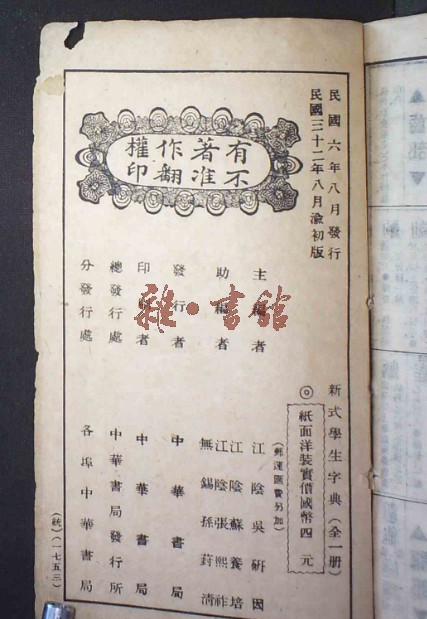 民國六年八月發行
民國三十二年八月渝初版
有著作權
不准翻印
新式學生字典(全一册)
◎紙面洋裝實價國幣四元
(郵運匯費另加)
主編者 江陰吳研因
助編者 江陰蘇養培
江陰張熙祚
無錫孫葑清
發行者 中華書局
印者 中華書局
總發行處 中華書局發行所
分發行處 各埠中華書局
(統)(一七五三)
雜·書館